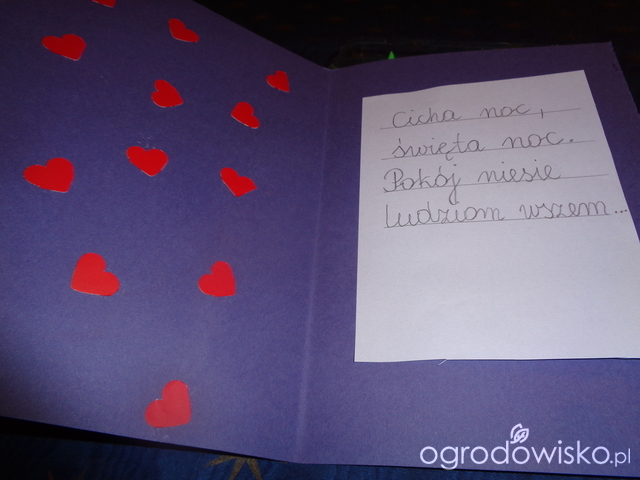 Cicha noc,
święta noc.
Pokój niesie
ludziom wszem...
ogrodowisko.pl